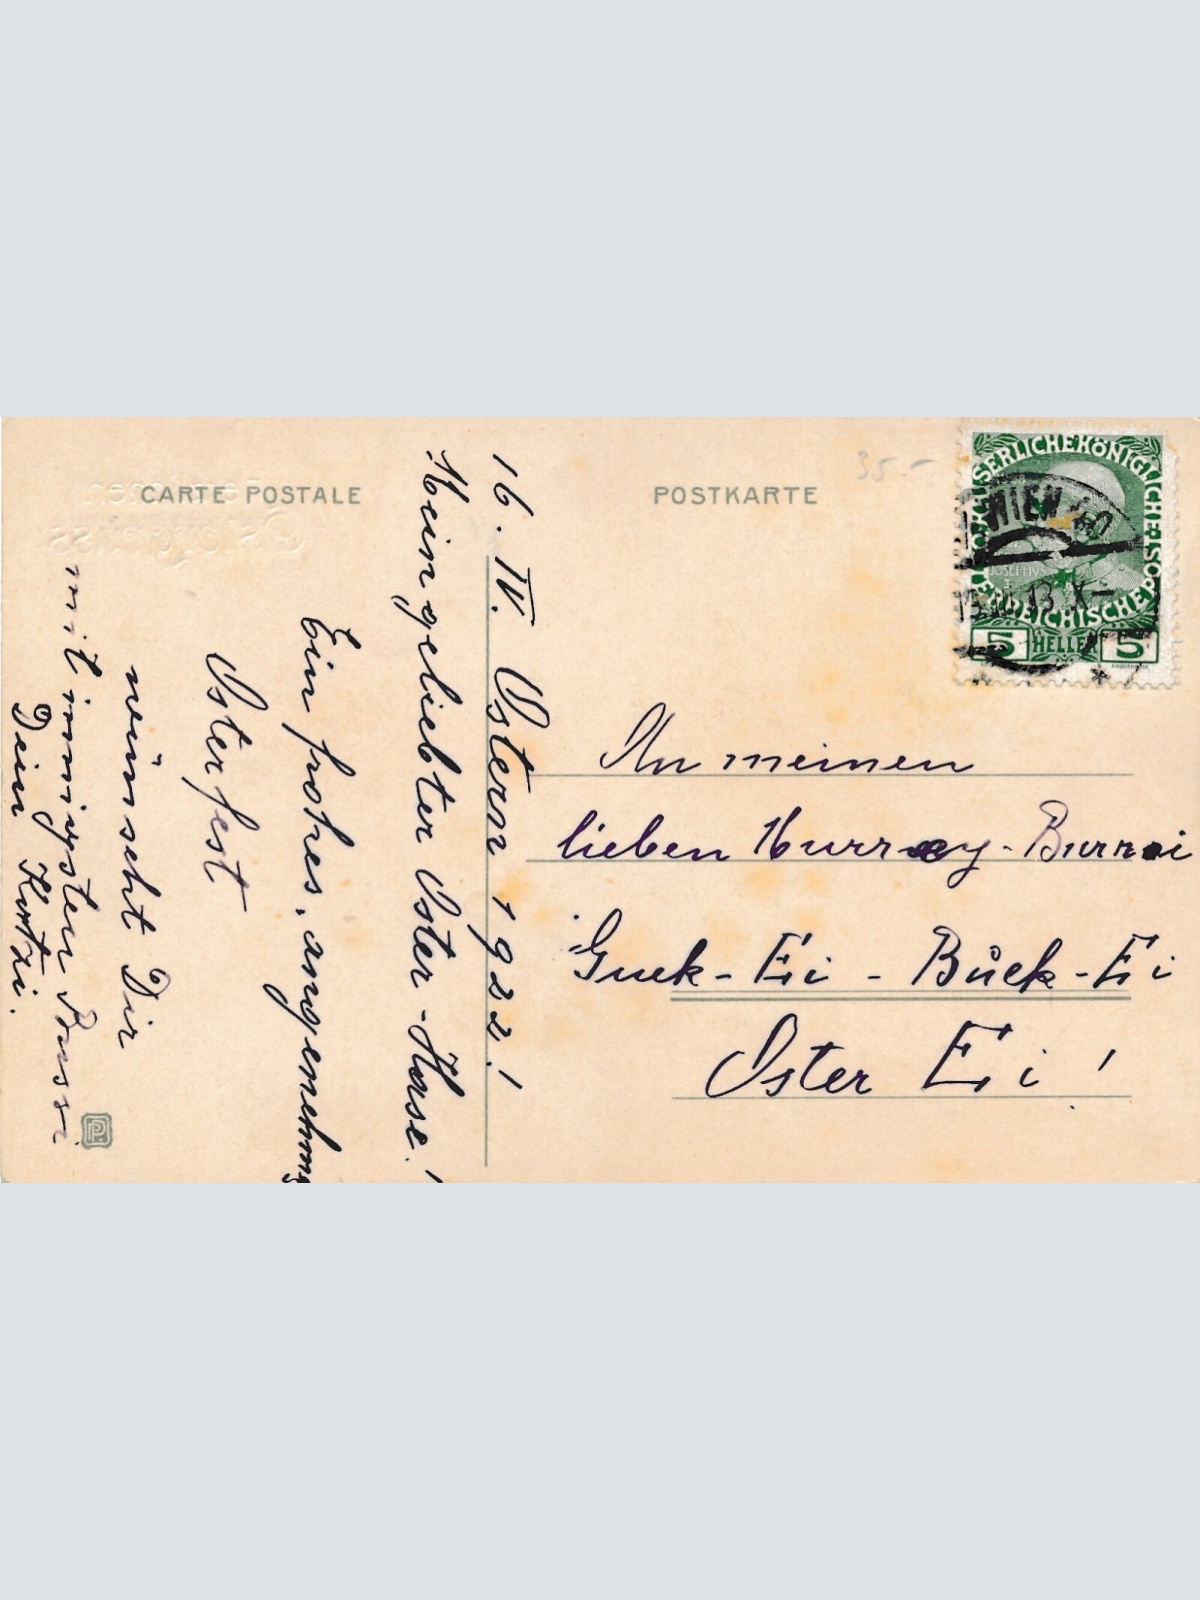 CARTE POSTALE
POSTKARTE
35.-
KAISERLICHE KÖNIGLICHE
ÖSTERREICHISCHE POST
JOSEPHVS
5 HELLER 5
WIEN
16. IV. Ostern 1922!
Mein geliebter Oster-Hase!
Ein frohes, angenehmes
Osterfest
wünscht Dir
mit innigsten Bussi
Dein
An meinen
lieben Murray-
Guck-Ei-Bück-Ei
Oster Ei!